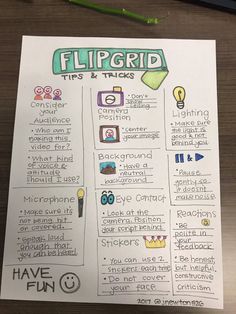 FLIPGRID
TIPS & TRICKS
Consider
your
Audience
• Who am I
making this
video for?
• What kind
of voice &
attitude
should I use?
Camera
Position
• Don't
center
your image
Lighting
• Make sure
the light is
good & not
behind you
Background
• Have a
neutral
background
• Pause
gently so
it doesnt
make noise
Microphone
• Make sure its
not being hit
or covered.
• Speak loud
enough that
you can be heard
Eye Contact
• Look at the
camera. Position
your script behind
Reactions
• Be
polite in
your
feedback
• Be honest,
but helpful,
constructive
criticism
Stickers
• You can use 2
stickers each time
• Do not cover
your face
HAVE
FUN
2017 @jnewton1926